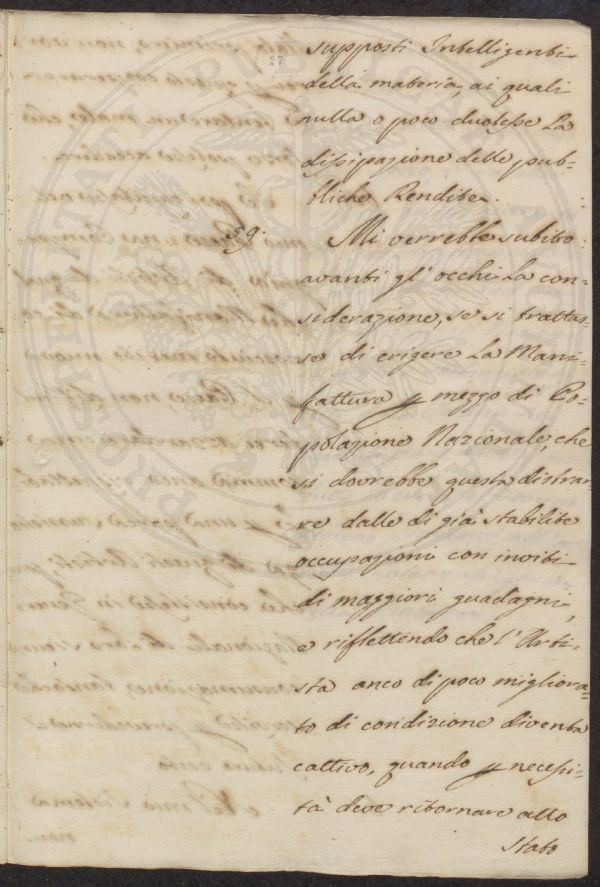 27
supposti Intelligenti
della materia, ai quali
nulla o poco duolesse La
dissipazione delle pub=
bliche Rendite.
59. Mi verrebbe subito
avanti gl' occhi La con=
siderazione, se si trattas=
se di erigere La Mani=
fattura p mezzo di Po=
polazione Nazionale, che
si dovrebbe questa distrar=
re dalle di già stabilite
occupazioni con inviti
di maggiori guadagni,
e riflettendo che l'Arti=
sta anco di poco migliora=
to di condizione diventa
cattivo, quando p necessi=
tà deve ritornare allo
Stato